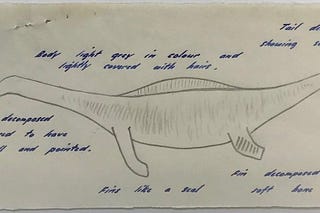 Tail
showing
Body light grey in colour and
lightly covered with hairs.
decomposed
to have
and pointed.
Fins like a seal
Fin decomposed
soft bone